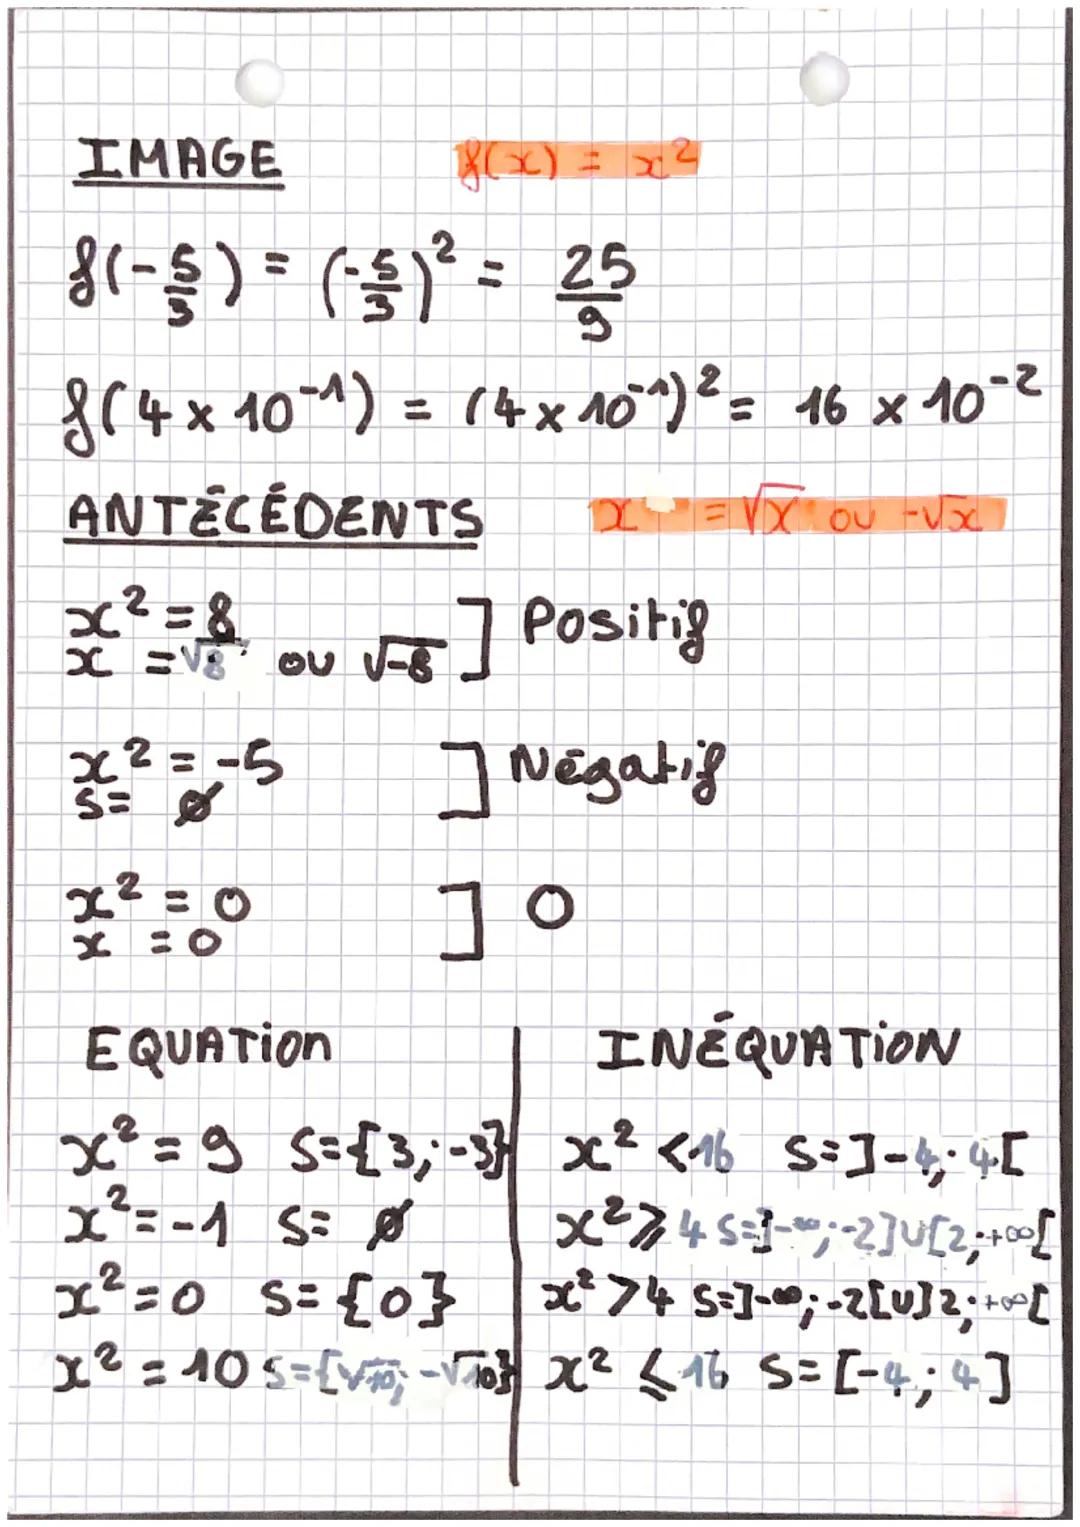 IMAGE f(x) = x²
f(-5/3) = (-5/3)² = 25/9
f(4 x 10⁻¹) = (4 x 10⁻¹)² = 16 x 10⁻²
ANTÉCÉDENTS x = √x ou -√x
x² = 8
x = √8 ou √-8 ] Positif
x² = -5
S= ∅ ] Négatif
x² = 0
x = 0 ] 0
EQUATiON
x² = 9 S={3;-3}
x² = -1 S= ∅
x² = 0 S= {0}
x² = 10 S={√10; -√10}
INÉQUATiON
x² < 16 S=]-4; 4[
x² ⩾ 4 S=]-∞; -2]U[2; +∞[
x² > 4 S=]-∞; -2[U]2; +∞[
x² ⩽ 16 S= [-4; 4]